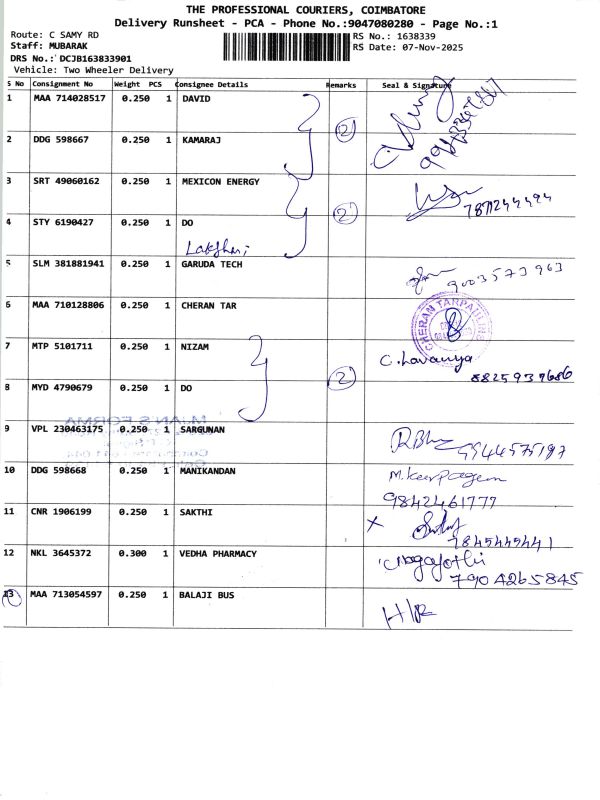 THE PROFESSIONAL COURIERS, COIMBATORE
Delivery Runsheet - PCA - Phone No.:9047080280 - Page No.:1
Route: C SAMY RD
RS No.: 1638339
Staff: MUBARAK
RS Date: 07-Nov-2025
DRS No.: DCJB163833901
Vehicle: Two Wheeler Delivery
S No Consignment No Weight PCS Consignee Details Remarks Seal & Signature
1 MAA 714028517 0.250 1 DAVID
2
2 DDG 598667 0.250 1 KAMARAJ
3 SRT 49060162 0.250 1 MEXICON ENERGY
2
4 STY 6190427 0.250 1 DO
Lakshmi
5 SLM 381881941 0.250 1 GARUDA TECH
9003573963
6 MAA 710128806 0.250 1 CHERAN TAR
CHERAN TARPAULINS
7 MTP 5101711 0.250 1 NIZAM
C. Lavanya
2
8825939686
8 MYD 4790679 0.250 1 DO
9 VPL 230463175 0.250 1 SARGUNAN
9944575197
10 DDG 598668 0.250 1 MANIKANDAN
9842461777
11 CNR 1906199 0.250 1 SAKTHI
12 NKL 3645372 0.300 1 VEDHA PHARMACY
7904265845
13 MAA 713054597 0.250 1 BALAJI BUS